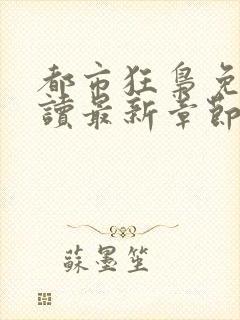 都市狂梟免
讀最新章節
蘇墨笙